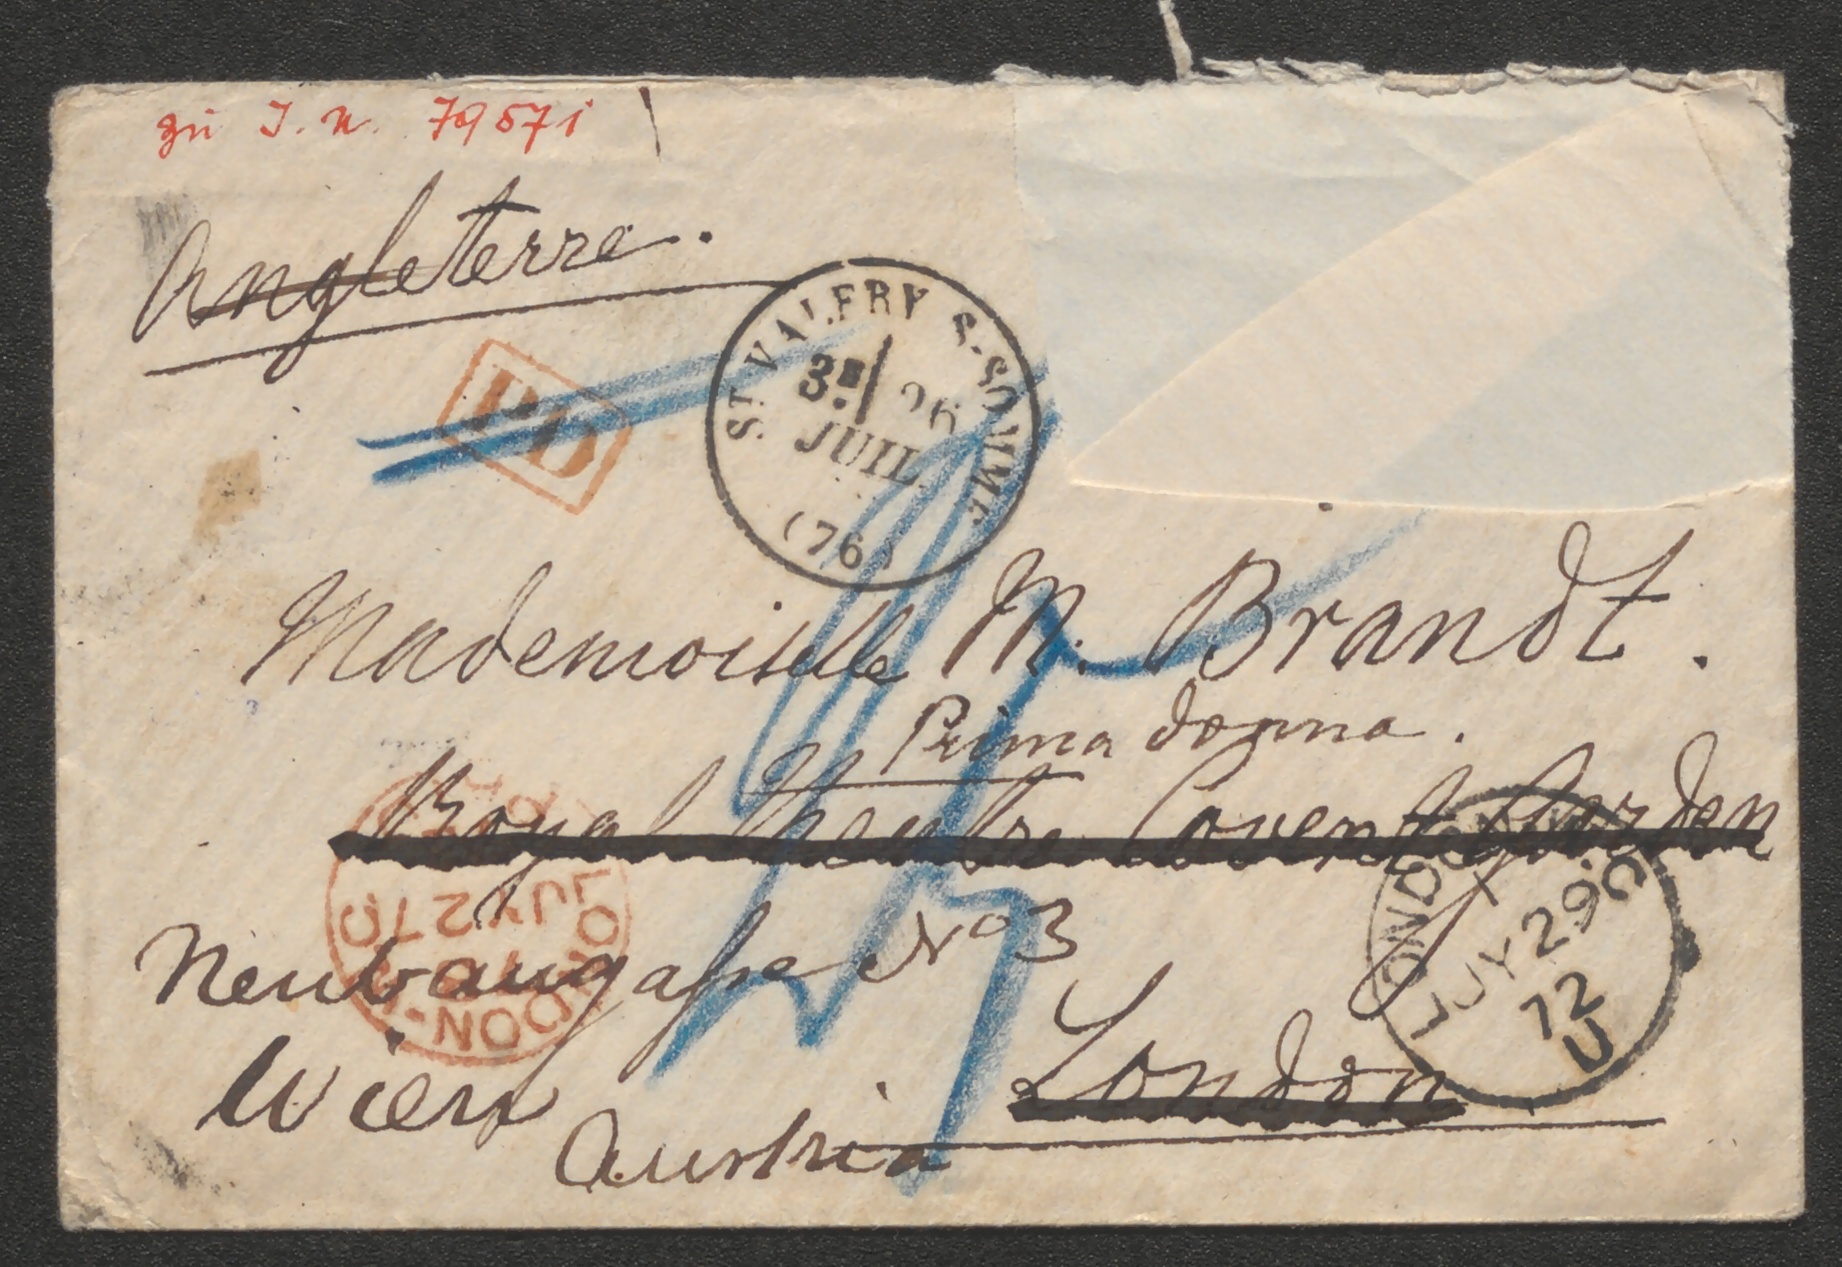 zu I. N. 79571
Angleterre.
PD
ST VALERY S-SOMME
3E 26
JUIL.
(76)
Mademoiselle M. Brandt.
Prima donna.
Royal Theatre Covent Garden
LONDON
JY 27
Neubaugasse No 3
LONDON
JY 29
72
U
London
Wien
Austria